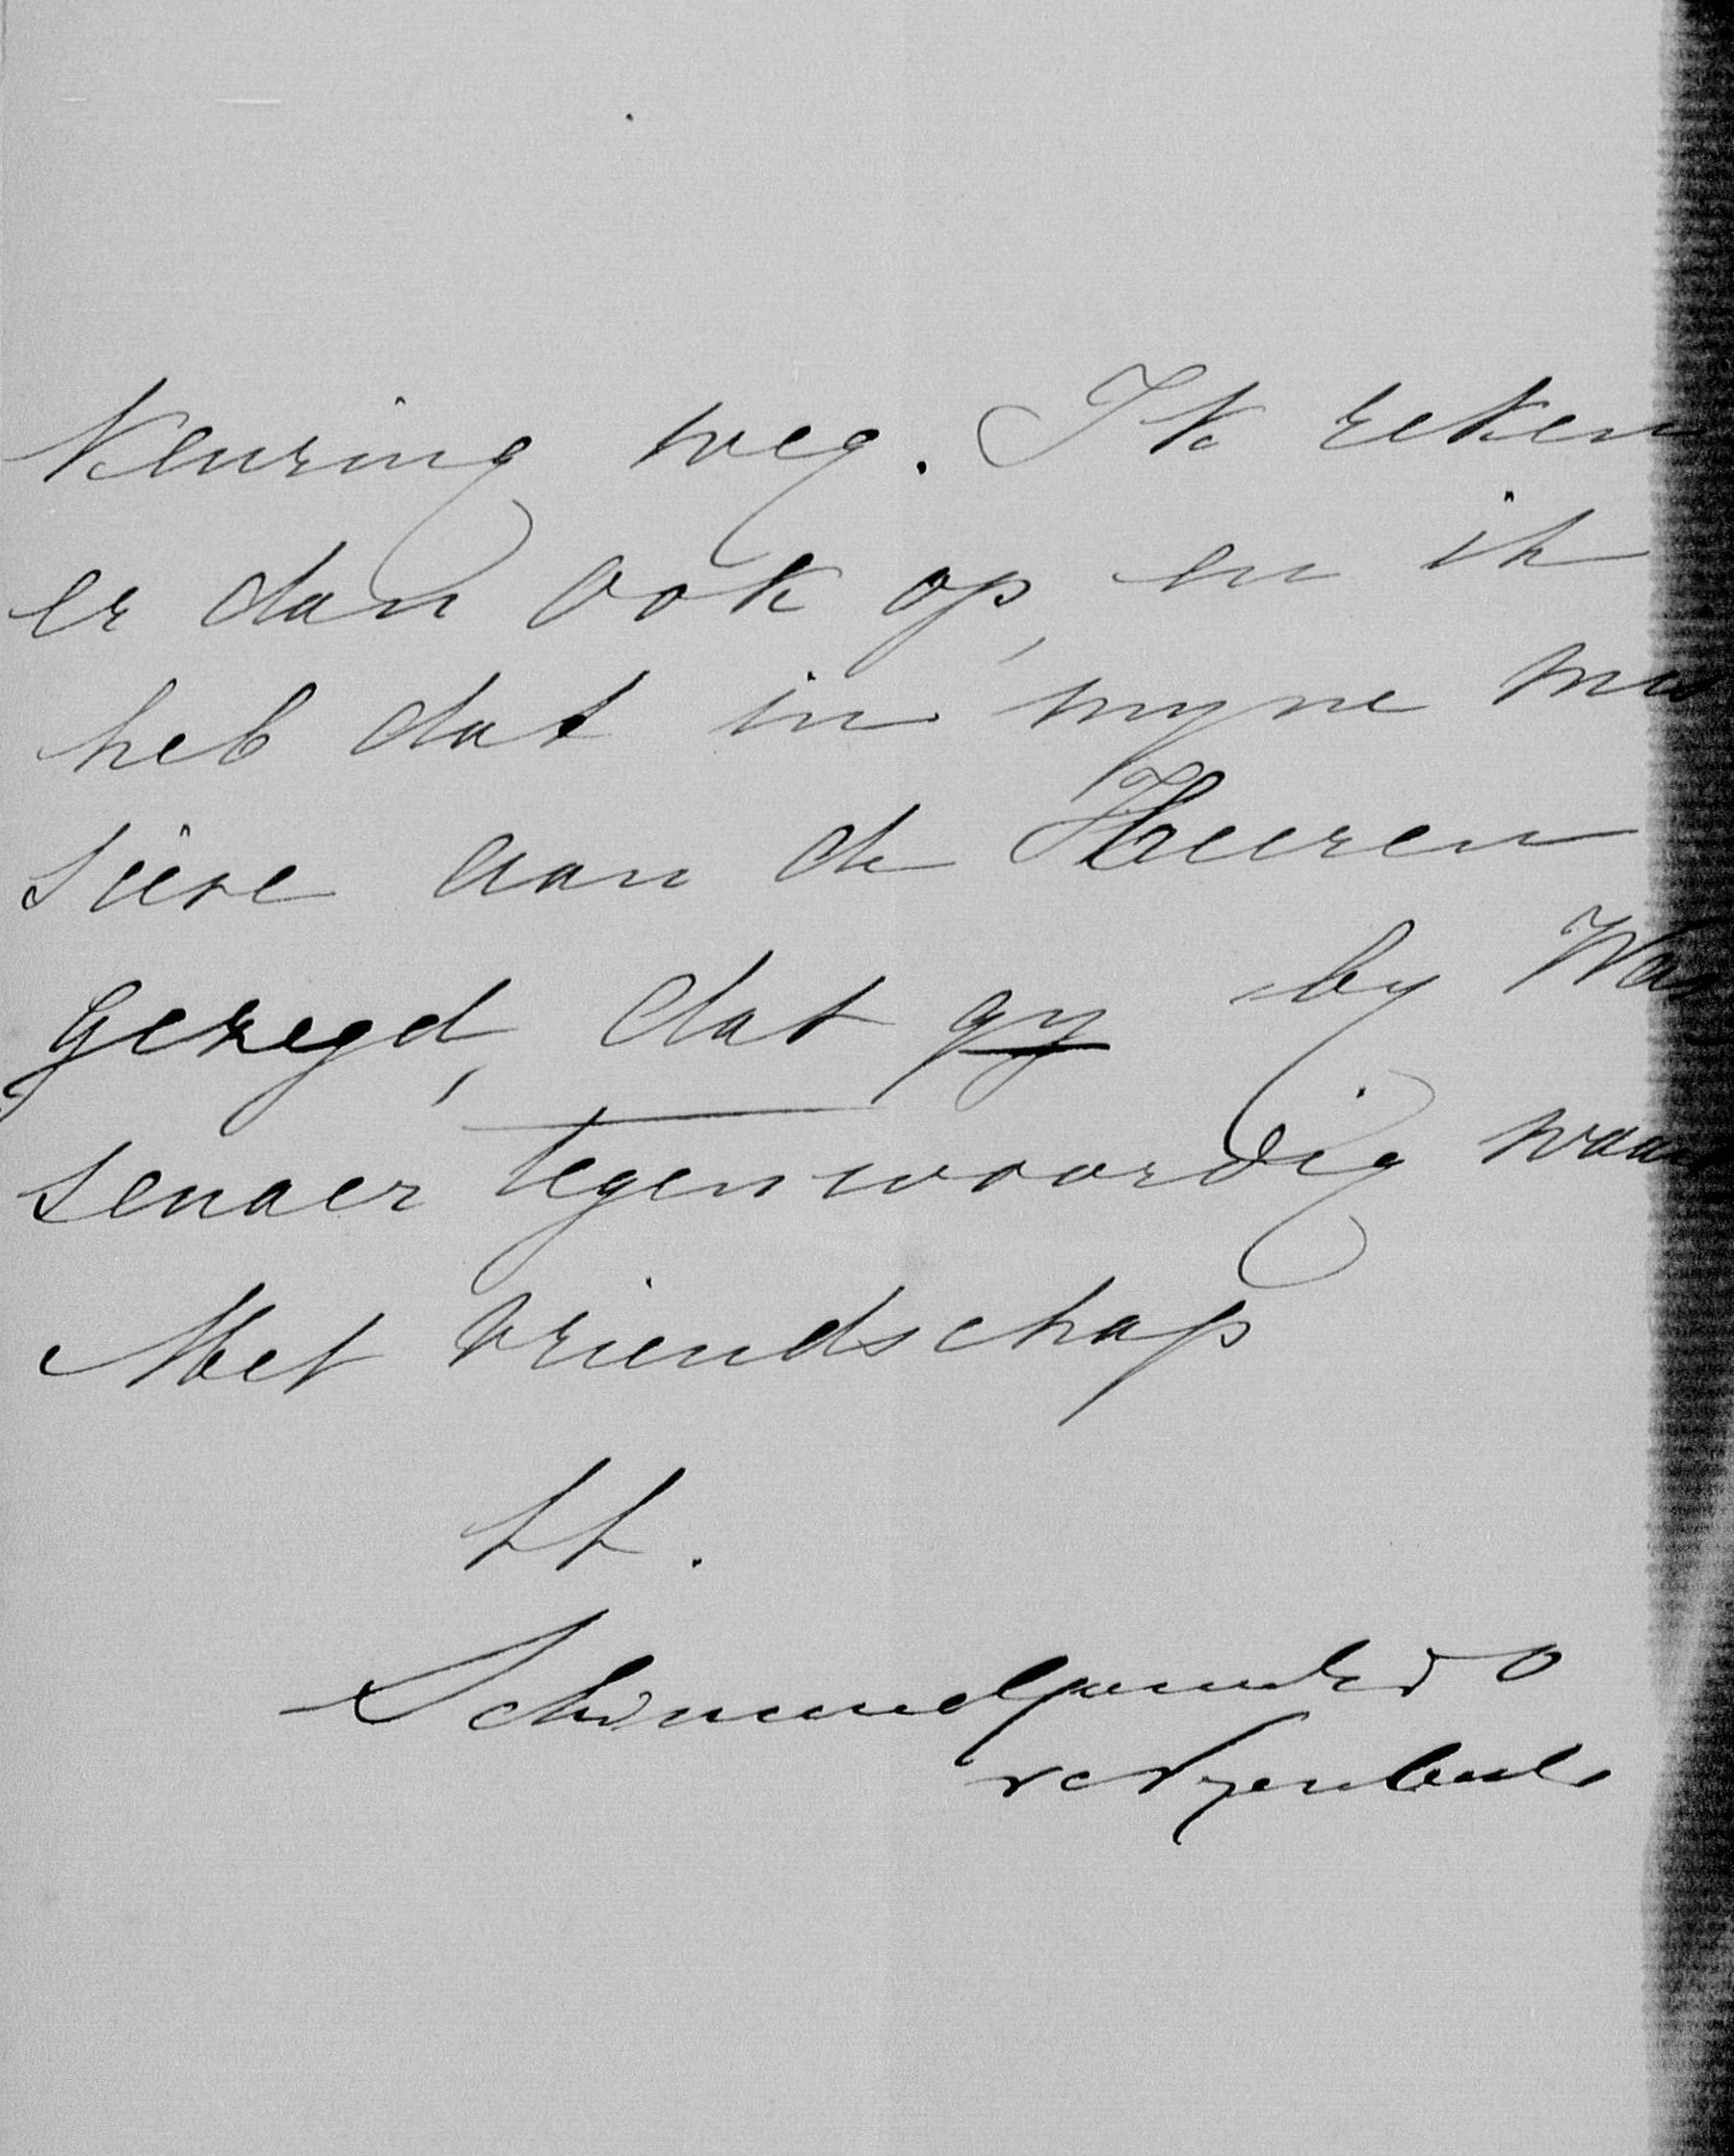 keuring weg. Ik reken
er dan ook op, en ik
heb dat in myne mis
sive aan de Heeren
gezegd, dat gy by Was
senaer tegenwoordig waart
Met vriendschap
tt.
Schimmelpenninck v d O
v Nyenbeek